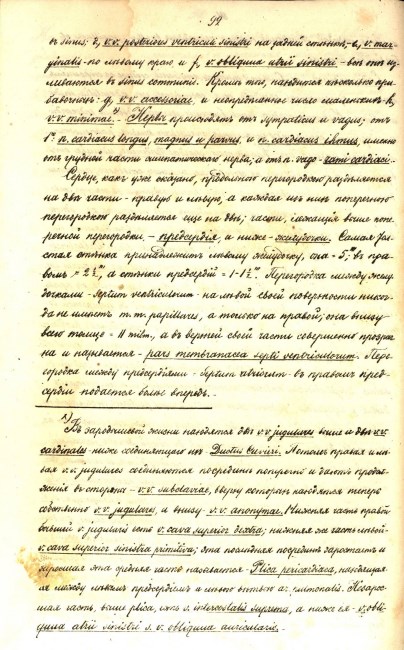 99
въ sinus: d, v.v. posterius ventriculi sinistri на задней стѣнкѣ, e, v. mar-
ginalis - по лѣвому краю и f, v. obliqua atrii sinistri - всѣ онѣ из-
ливаются въ sinus communis. Кромѣ того, находится нѣсколько при-
бавочныхъ: g, v.v. accessoriae и неопредѣленное число маленькихъ h,
v.v. minimae. Нервы происходятъ отъ sympaticus и vagus; отъ
1го n. cardiacus longus, magnus и parvus, и n. cardiacus imus, именно
отъ грудной части симпатическаго нерва; а отъ n. vago - rami cardiaci.
Сердце, какъ уже сказано, продольною перегородкою раздѣляется
на двѣ части - правую и лѣвую, а каждая изъ нихъ поперечною
перегородкою раздѣляется еще на двѣ; части, лежащія выше попе-
речной перегородки - предсердія, и ниже - желудочки. Самая тол-
стая стѣнка принадлежитъ лѣвому желудочку, она = 5‴, въ пра-
вомъ = 2½‴, а стѣнки предсердій = 1-1½‴. Перегородка между желу-
дочками - septum ventriculorum - на лѣвой своей поверхности никог-
да не имѣетъ m.m. papillares, а только на правой; она внизу
всего толще = 11 mlm., а въ верхней своей части совершенно прозрач-
на и называется - pars membranacea septi ventriculorum. Пере-
городка между предсердіями - septum atriorum - въ правомъ пред-
сердіи подается болѣе впередъ.
Въ зародышевой жизни находятся двѣ v.v. jugulares выше и двѣ v.v.
cardinales - ниже соединяющіяся въ Ductus Cuvieri. Потомъ правая и лѣ-
вая v.v. jugulares соединяются посрединѣ поперечно и даютъ продол-
женія въ стороны - v.v. subclaviae, вверху которыхъ находятся теперь
собственно v.v. jugulares, а внизу - v.v. anonymae. Нижняя часть правой
бывшей v. jugularis есть v. cava superior dextra; нижняя же часть лѣвой -
v. cava superior sinistra primitiva; эта послѣдняя посрединѣ заростаетъ и
заросшая эта средняя часть называется - Plica pericardiaca, находящая-
ся между лѣвымъ предсердіемъ и лѣвою вѣтвью ar. pulmonalis. Незарос-
шая часть, выше plica, есть v. intercostalis suprema, а ниже ея - v. obli-
quua atrii sinistri s. v. obliquua auricularis.